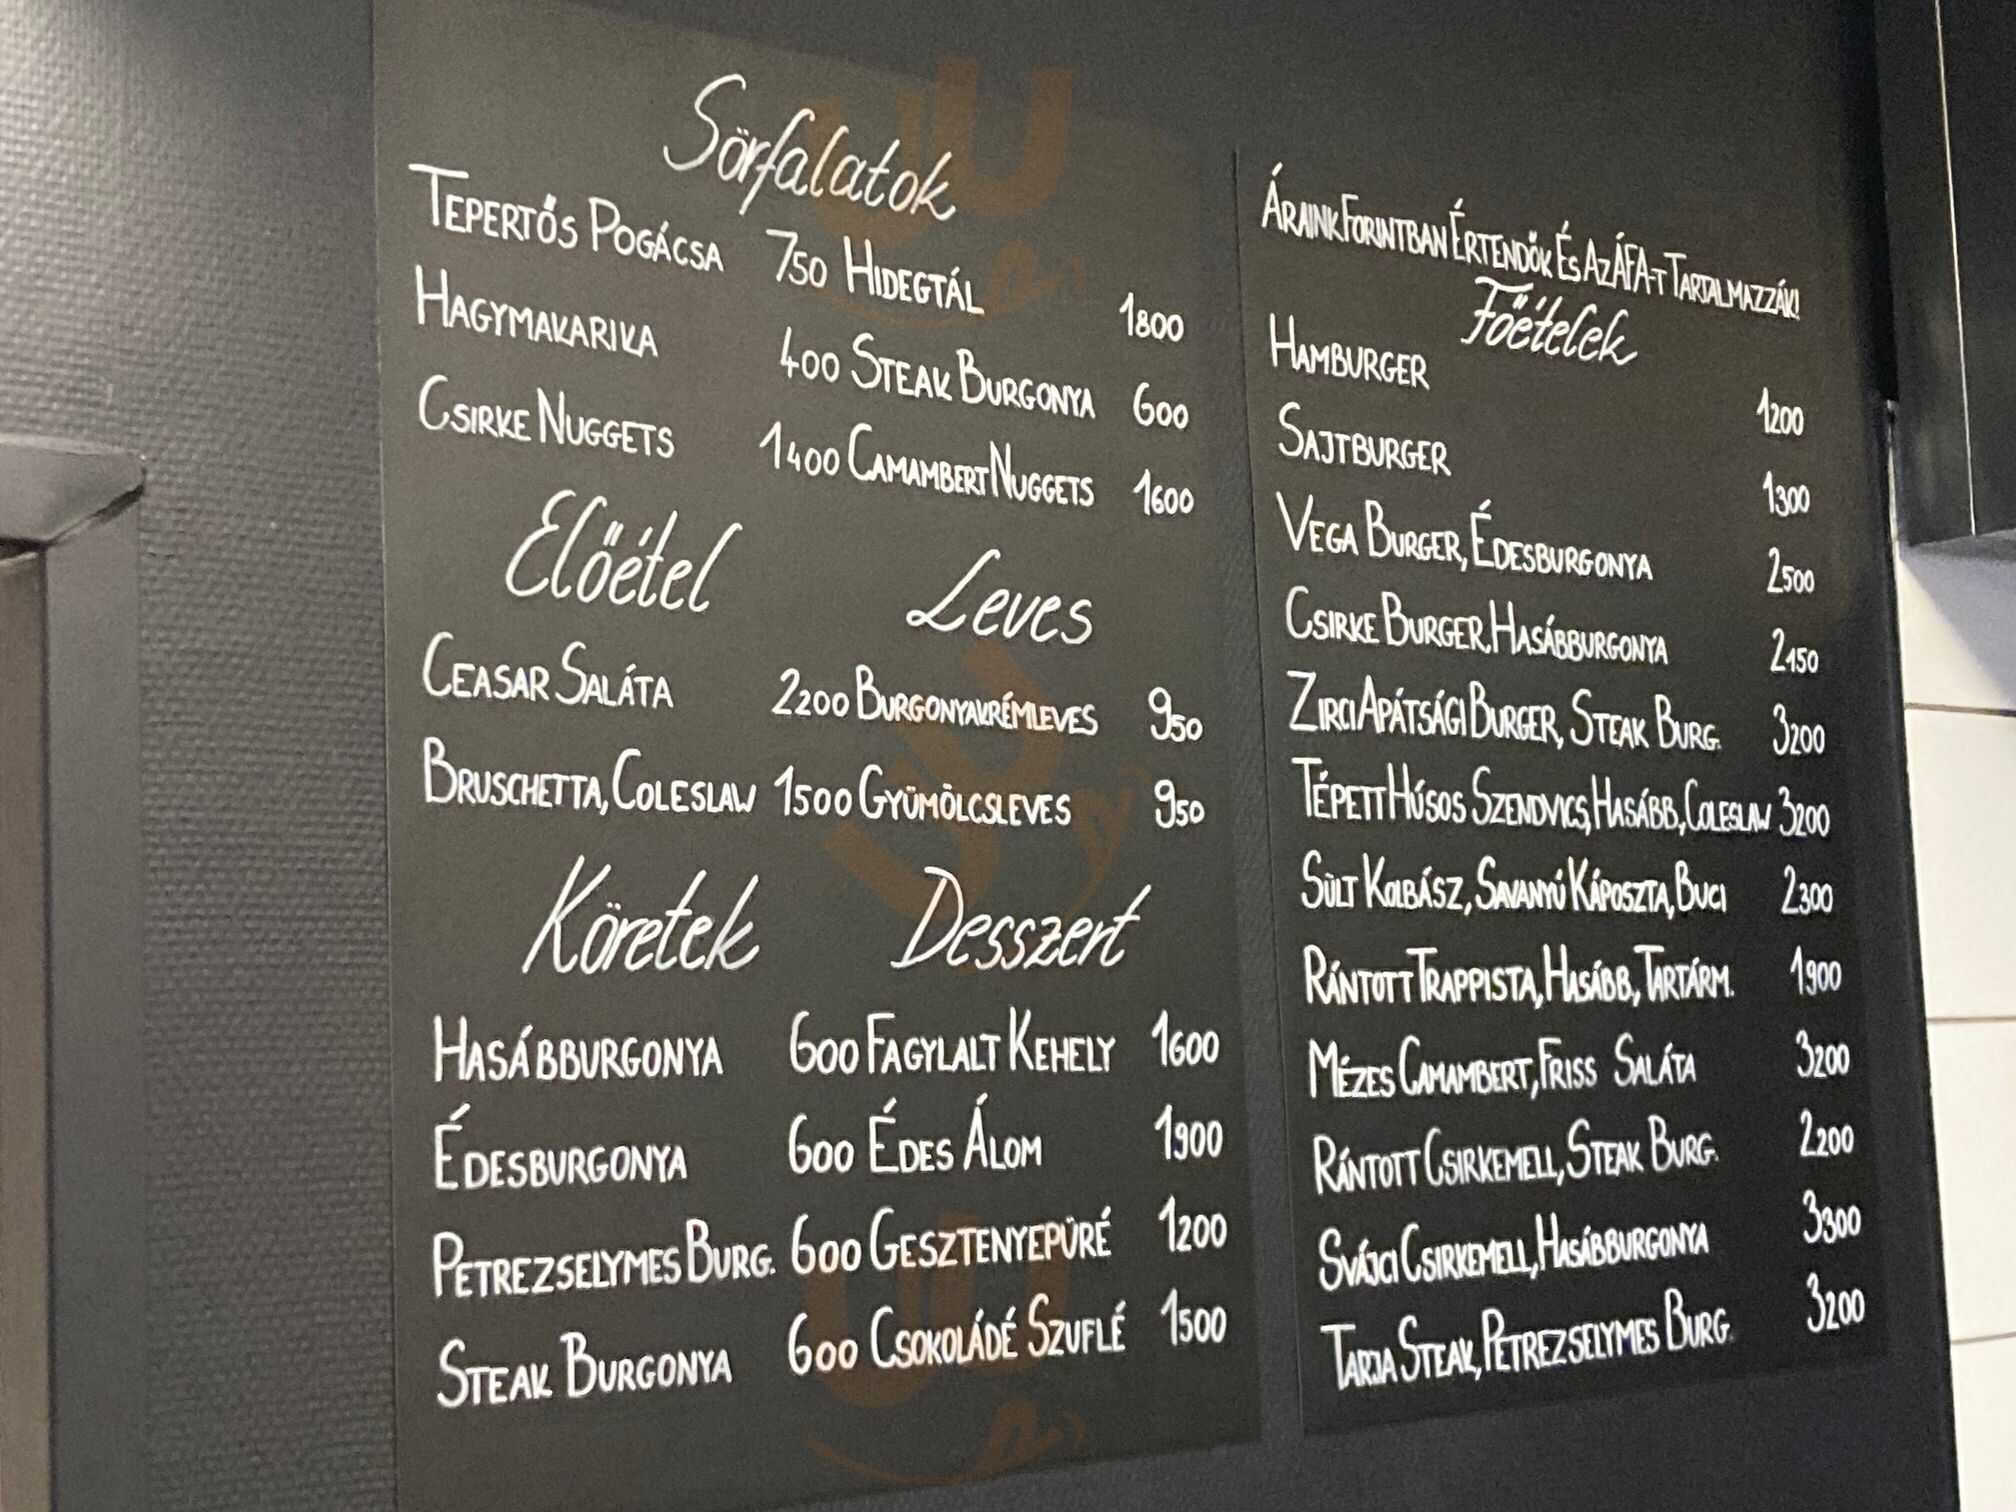 Sörfalatok
Tepertős Pogácsa 750 Hidegtál 1800
Hagymakarika 400 Steak Burgonya 600
Csirke Nuggets 1400 Camambert Nuggets 1600
Előétel Leves
Ceasar Saláta 2200 Burgonyakrémleves 950
Bruschetta, Coleslaw 1500 Gyümölcsleves 950
Köretek Desszert
Hasábburgonya 600 Fagylalt Kehely 1600
Édesburgonya 600 Édes Álom 1900
Petrezselymes Burg. 600 Gesztenyepüré 1200
Steak Burgonya 600 Csokoládé Szuflé 1500
Áraink Forintban Értendők És Az ÁFA-t Tartalmazzák!
Főételek
Hamburger 1200
Sajtburger 1300
Vega Burger, Édesburgonya 2500
Csirke Burger, Hasábburgonya 2150
Zirci Apátsági Burger, Steak Burg. 3200
Tépett Húsos Szendvics, Hasább, Coleslaw 3200
Sült Kolbász, Savanyú Káposzta, Buci 2300
Rántott Trappista, Hasább, Tartárm. 1900
Mézes Camambert, Friss Saláta 3200
Rántott Csirkemell, Steak Burg. 2200
Svájci Csirkemell, Hasábburgonya 3300
Tarja Steak, Petrezselymes Burg. 3200